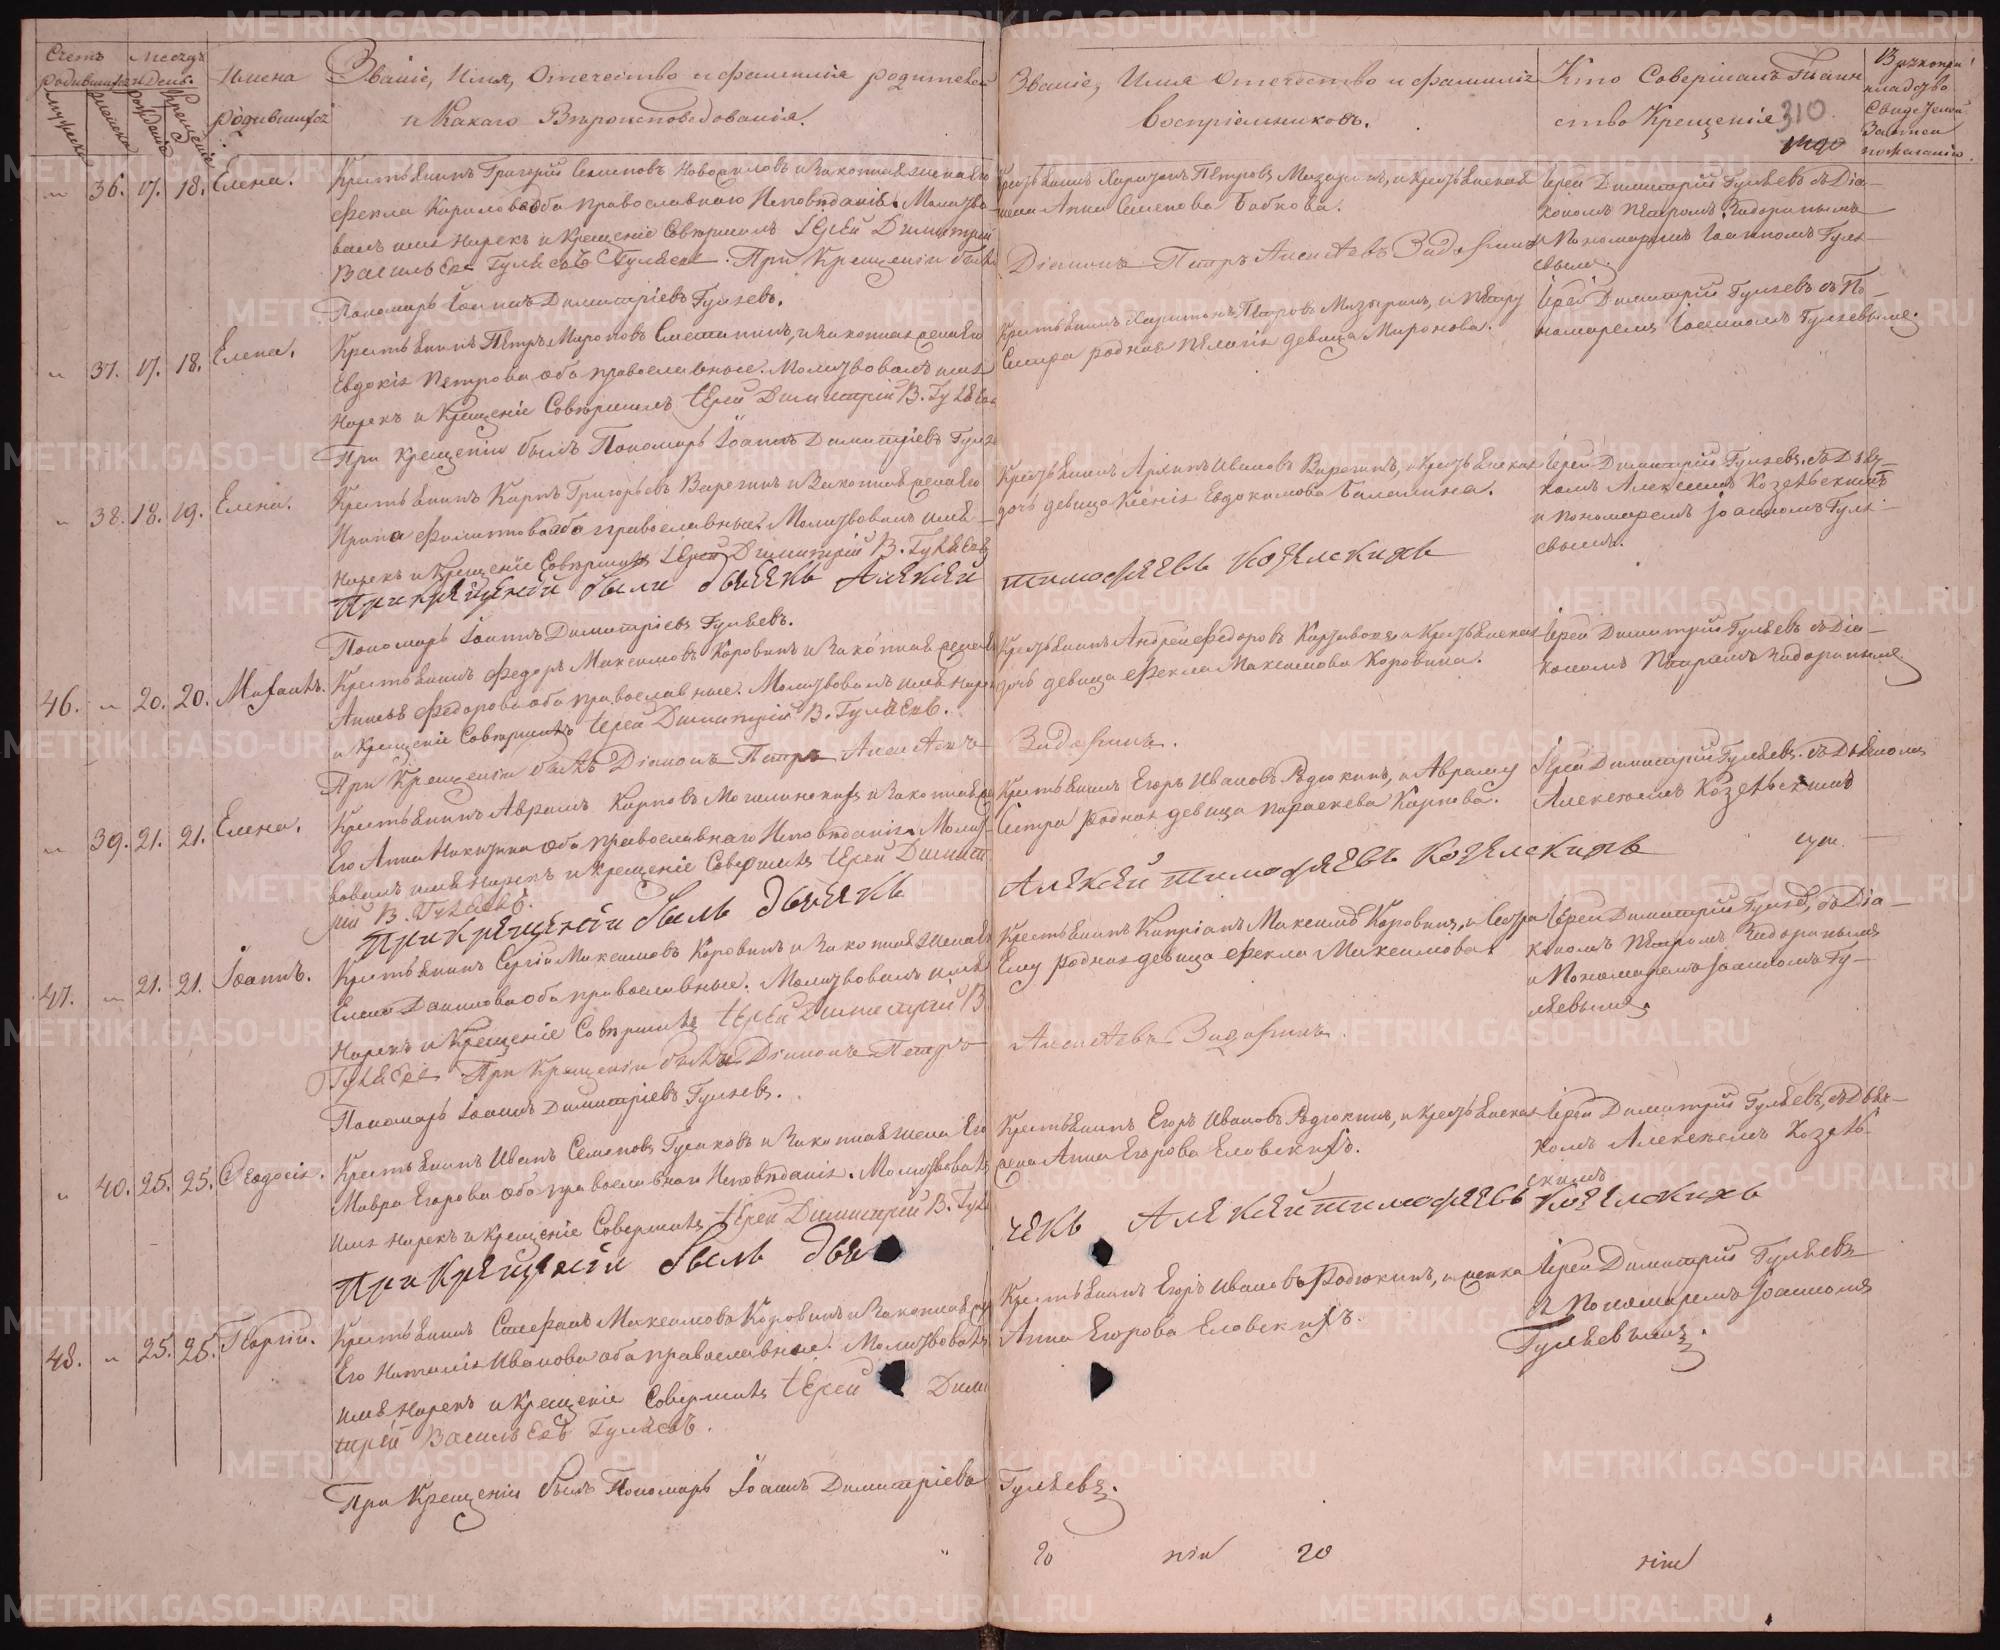 Счетъ родившихся
Месяцъ и День
мужеска
женска
рождения
Крещенія
Имена родившихся
Званіе, Имя, Отечество и фамилія родителей
и Какаго Вѣроисповедованія.
Званіе, Имя Отечество и фамилія
Воспріемниковъ.
Кто Совершалъ Таин
ство Крещенія
310
36. 17. 18. Елена.
Крестьянинъ Григорий Семеновъ Новоселовъ и Законная жена его
Фекла Карпова оба православнаго Исповѣданія. Молитво-
валъ имя Нарекъ и Крещеніе Совершилъ Іерей Димитрій
Васильевъ Гуляевъ. При Крещеніи былъ
Пономарь Іоаннъ Димитріевъ Гуляевъ.
Крестьянинъ Харитонъ Петровъ Мазыринъ, и Крестьянская
жена Анна Семенова Бабкова.
Діаконъ Петръ Алексѣевъ Задоринъ
Іерей Димитрій Гуляевъ съ Діа-
кономъ Петромъ Задоринымъ
и Пономаремъ Іоанномъ Гуля-
евымъ.
37. 17. 18. Елена.
Крестьянинъ Петръ Мироновъ Сметанинъ, и законная жена его
Евдокія Петрова оба православные. Молитвовалъ имя
Нарекъ и Крещеніе Совершилъ Іерей Димитрій В. Гуляевъ
При Крещеніи былъ Пономарь Іоаннъ Димитріевъ Гуляе
Крестьянинъ Харитонъ Петровъ Мазыринъ, и Петру
Сестра родная Пелагія девица Миронова.
Іерей Димитрій Гуляевъ съ По-
номаремъ Іоанномъ Гуляевымъ.
38. 18. 19. Елена.
Крестьянинъ Карпъ Григорьевъ Варегинъ и Законная жена его
Ирина Филипова оба православные. Молитвовалъ имя
Нарекъ и Крещеніе Совершилъ Іерей Димитрій В. Гуляевъ
При крещеніи были дьячекъ Алексей
Пономарь Іоаннъ Димитріевъ Гуляевъ.
Крестьянинъ Архипъ Ивановъ Варегинъ, и Крестьянская
дочь девица Ксенія Евдокимова Балакина.
тимофеевъ козелскихъ
Іерей Димитрій Гуляевъ. съ Дьяч-
комъ Алексеемъ Козельскимъ
и пономаремъ Іоанномъ Гуля-
евымъ.
46. 20. 20.
Крестьянинъ Федоръ Максимовъ Коровинъ и Законная жена
Анисья Федорова оба православные. Молитвовалъ имя Наре
и Крещеніе Совершилъ Іерей Димитрій В. Гуляевъ.
При Крещеніи былъ Діаконъ Петръ Алексѣевъ
Крестьянинъ Андрей Федоровъ и Крестьянская
дочь девица Фекла Максимова Коровина.
Задоринъ.
Іерей Димитрий Гуляевъ съ Діа-
кономъ Петромъ Задоринымъ
39. 21. 21. Елена.
Крестьянинъ Аврамъ Карповъ Могилинскихъ и Законная же
Его Анна Никитина оба православнаго Исповѣданія. Молит-
вовалъ имя Нарекъ и Крещеніе Совершилъ Іерей Димит
рій В. Гуляевъ.
При крещеніи былъ дьячекъ
Крестьянинъ Егоръ Ивановъ Рѣдюкинъ, и Авраму
Сестра родная девица параскева Карпова.
Алексей тимофеевъ козелскихъ
Іерей Димитрій Гуляевъ. съ дьячкомъ
Алексеемъ Козельскимъ
47. 21. 21. Іоаннъ.
Крестьянинъ Сергій Максимовъ Коровинъ и Законная жена ег
Елена Данилова оба православные. Молитвовалъ имя
Нарекъ и Крещеніе Совершилъ Іерей Димитрій В.
Гуляевъ. При Крещеніи были Діаконъ Петръ
Пономарь Іоаннъ Димитріевъ Гуляевъ.
Крестьянинъ Кипріанъ Максимовъ Коровинъ, и Сестра
Ему родная девица Фекла Максимова.
Алексѣевъ Задоринъ.
Іерей Димитрій Гуляевъ, съ Діа-
кономъ Петромъ Задоринымъ
и Пономаремъ Іоанномъ Гу-
ляевымъ.
40. 25. 25. Феодосія.
Крестьянинъ Иванъ Семеновъ Гусаковъ и Законная жена Его
Мавра Егорова оба православнаго Исповѣданія. Молитвовалъ
имя Нарекъ и Крещеніе Совершилъ Іерей Димитрій В. Гуля
При крещеніи былъ дья
Крестьянинъ Егоръ Ивановъ Рѣдюкинъ, и Крестьянская
жена Анна Егорова Еловскихъ.
чекъ Алексей тимофеевъ козелскихъ
Іерей Димитрій Гуляевъ, съ дьяч-
комъ Алексеемъ Козель-
скимъ
48. 25. 25. Георгій.
Крестьянинъ Стефанъ Максимовъ Коровинъ и Законная же
Его Наталія Иванова оба православные. Молитвовалъ
имя Нарекъ и Крещеніе Совершилъ Іерей Дими
трій Васильевъ Гуляевъ.
При Крещеніи былъ Пономарь Іоаннъ Димитріевъ
Крестьянинъ Егоръ Ивановъ Рѣдюкинъ, и женка
Анна Егорова Еловскихъ.
Гуляевъ.
Іерей Димитрій Гуляевъ
съ Пономаремъ Іоанномъ
Гуляевымъ.
METRIKI.GASO-URAL.RU